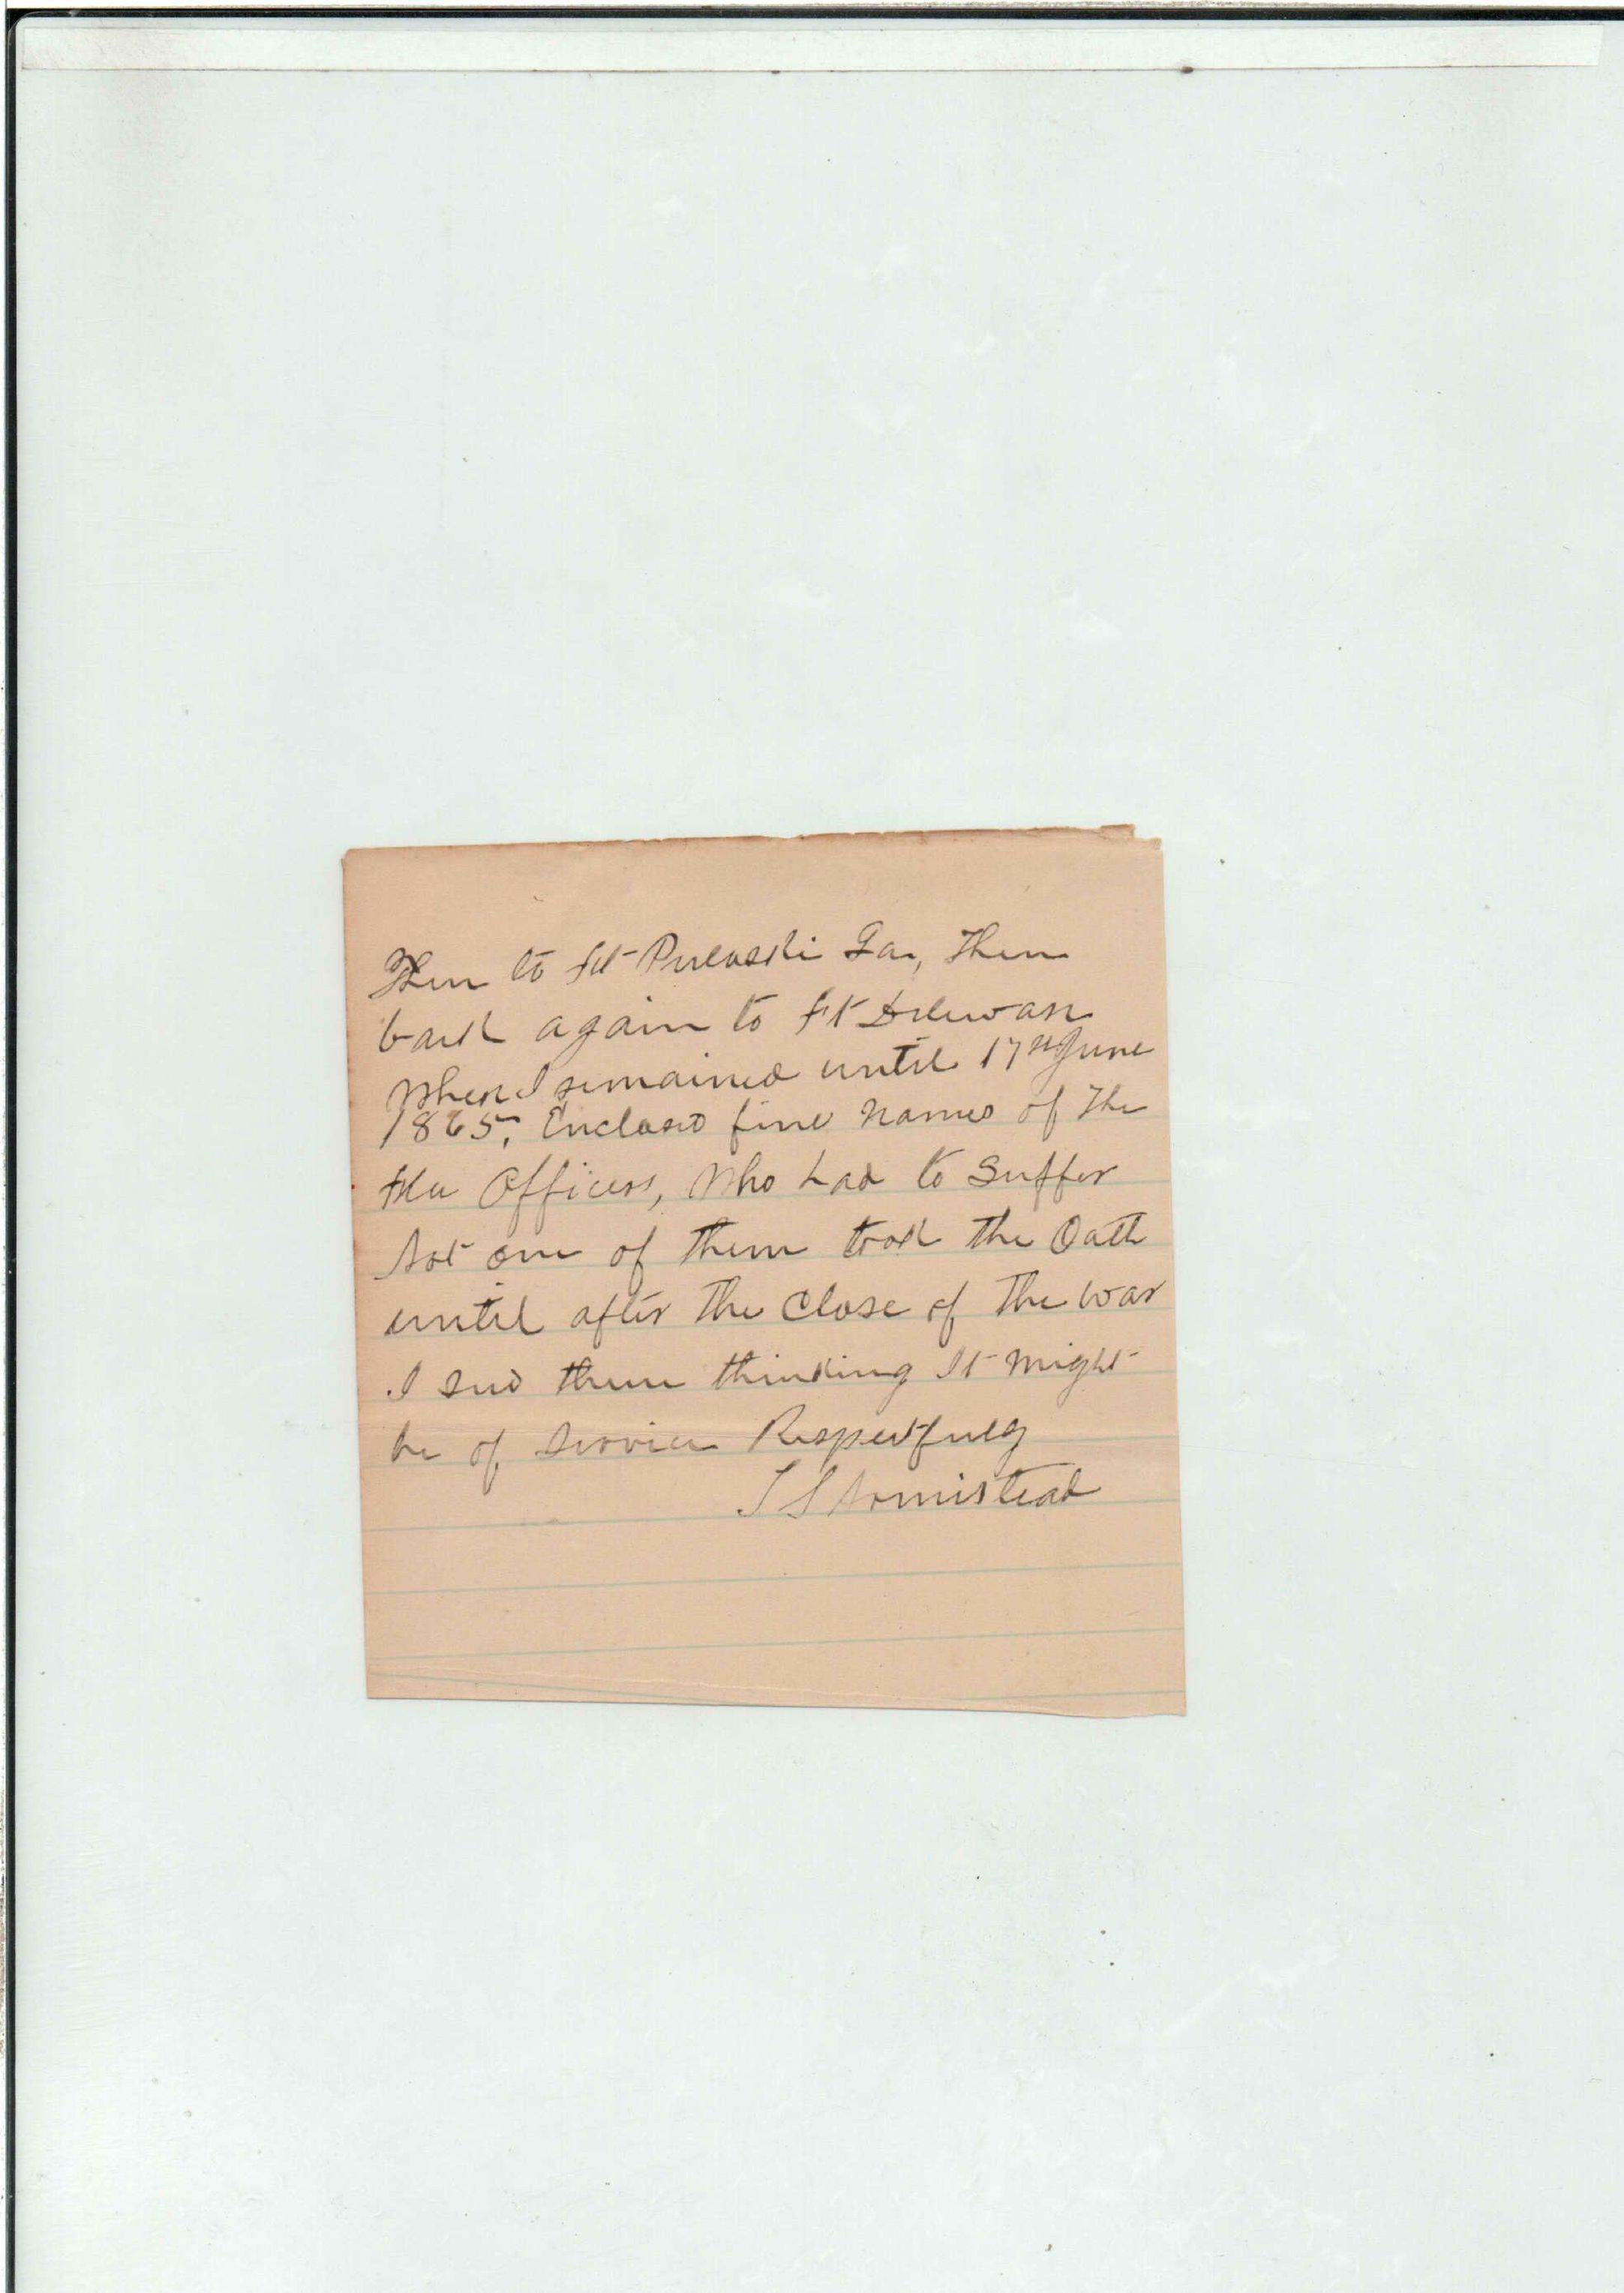 Then to Ft Pulaski Ga, Then
back again to Ft Delewar
Where I remained until 17th June
1865, Enclosed find names of the
Fla Officers, Who had to Suffer
Not one of them took the Oath
until after the Close of the War
I send them thinking It might
be of Service Respectfuly
T S Armistead